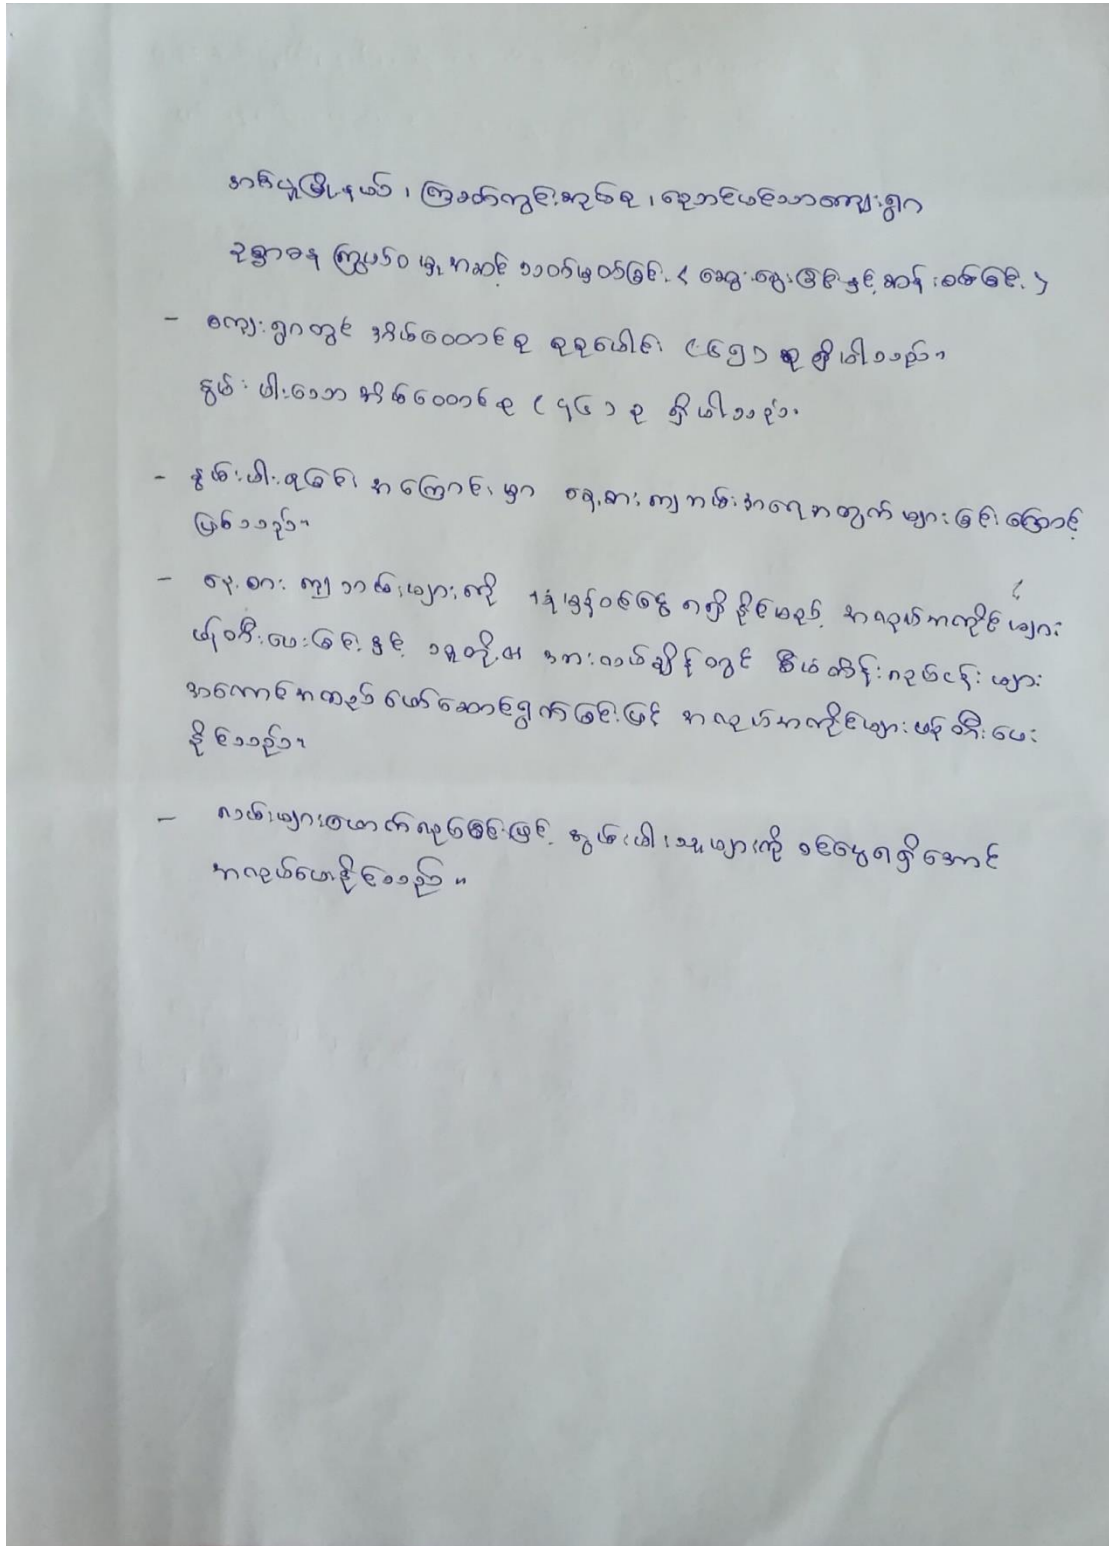 အင်ပူမြို့နယ်၊ ကြခတ်ကွင်းအုပ်စု၊ ညောင်ပင်သာကျေးရွာ
ဥစ္စာဓန ကြွယ်ဝမှု အဆင့် သတ်မှတ်ခြင်း < ဆွေးနွေးခြင်းနှင့် ဆန်းစစ်ခြင်း >
- ကျေးရွာတွင် အိမ်ထောင်စု စုစုပေါင်း (၄၆၅) စု ရှိပါသည်။
နွမ်းပါးသော အိမ်ထောင်စု (၇၆) စု ရှိပါသည်။
- နွမ်းပါးရခြင်း အကြောင်းမှာ နေ့စားကျဘမ်းအရေအတွက် များခြင်းကြောင့်
ဖြစ်သည်။
- နေ့စား ကျဘမ်းများကို ပုံမှန်ဝင်ငွေ ရရှိနိုင်မည့် အလုပ်အကိုင်များ
ဖန်တီးပေးခြင်းနှင့် သူတို့၏ အားလပ်ချိန်တွင် စီမံကိန်းလုပ်ငန်းများ
အကောင်အထည်ဖော်ဆောင်ရွက်ခြင်းဖြင့် အလုပ်အကိုင်များ ဖန်တီးပေး
နိုင်သည်။
- လမ်းများဖောက်လုပ်ခြင်းဖြင့် နွမ်းပါးသူများကို ဝင်ငွေရရှိအောင်
အလုပ်ပေးနိုင်သည်။